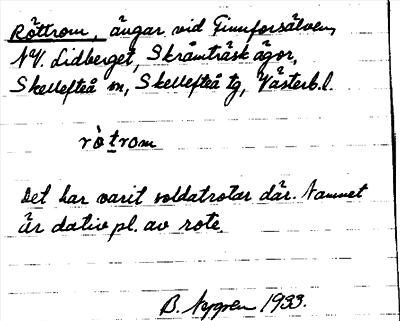 Röttrom, ängar vid Finnforsälven,
NV. Lidberget, Skråmträsk ägor,
Skellefteå sn, Skellefteå tg, Västerb.l.
rò̀trom
Det har varit soldatrotar där. Namnet
är dativ pl. av rote.
B. Nygren 1933.